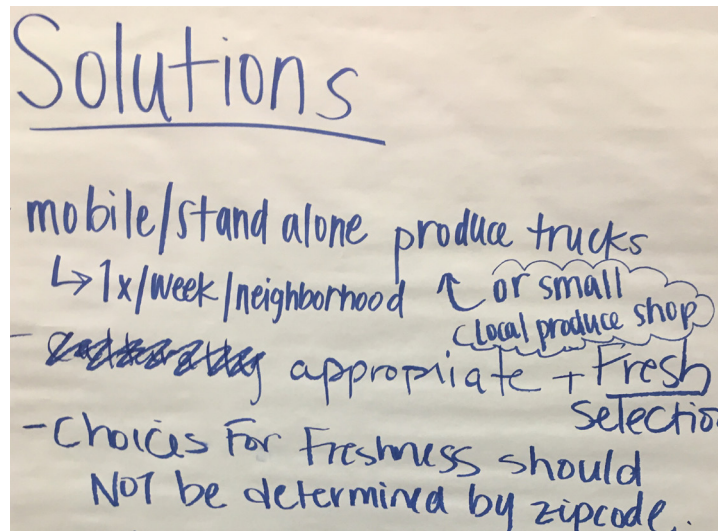 Solutions
mobile/stand alone produce trucks
↳ 1x/week/neighborhood ↑ or small
local produce shop
- appropriate + Fresh
selectio
- Choices For Freshness should
NOT be determined by zipcode.